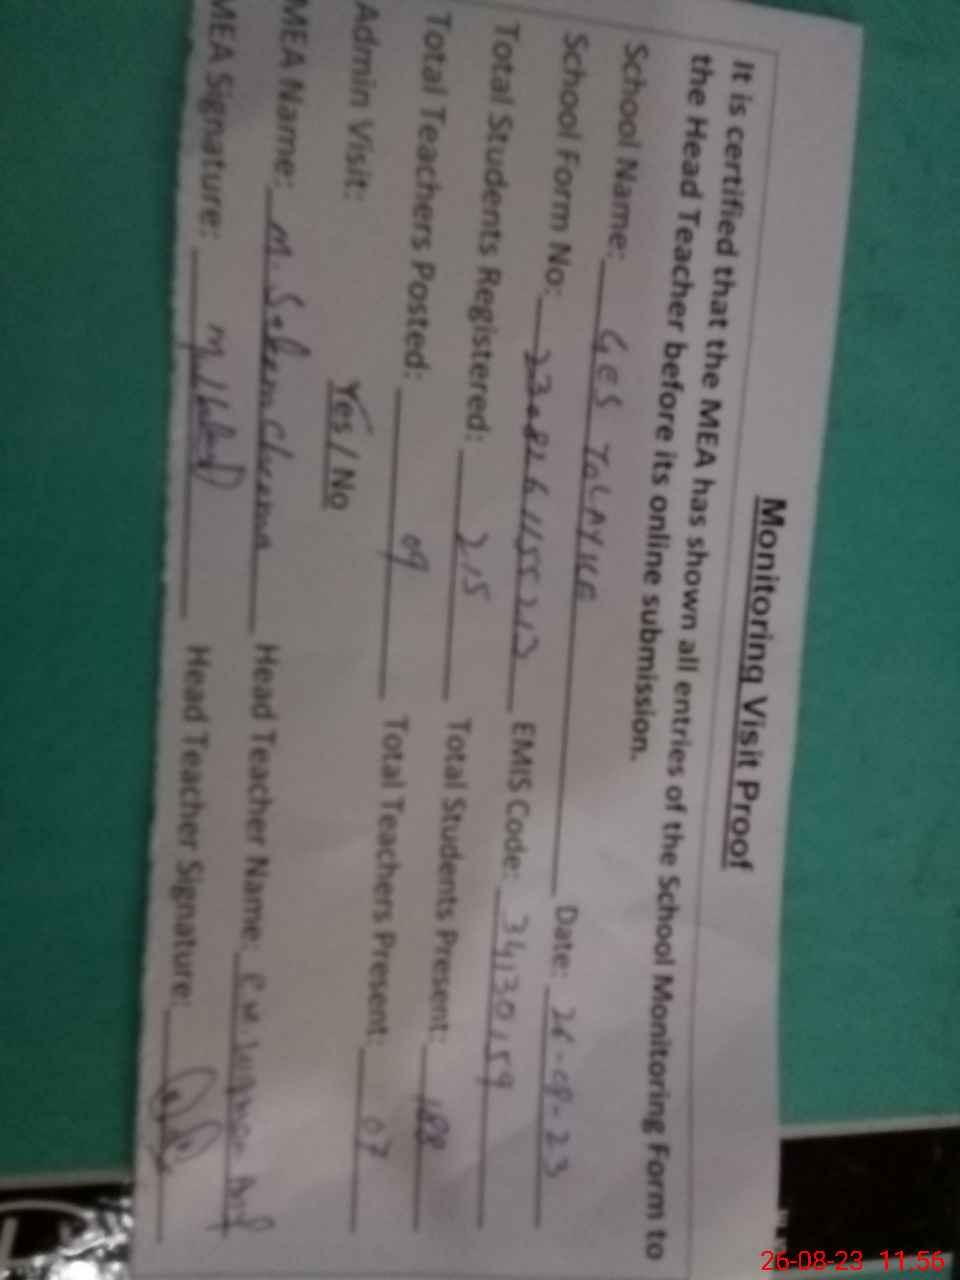 Monitoring Visit Proof
It is certified that the MEA has shown all entries of the School Monitoring Form to
the Head Teacher before its online submission.
School Name: GES TOLAY Date: 26-08-23
School Form No: EMIS Code: 34130159
Total Students Registered: 215 Total Students Present: 188
Total Teachers Posted: 09 Total Teachers Present: 07
Admin Visit: Yes / No
MEA Name: M. Saleem Head Teacher Name:
MEA Signature: Head Teacher Signature:
26-08-23 11:56